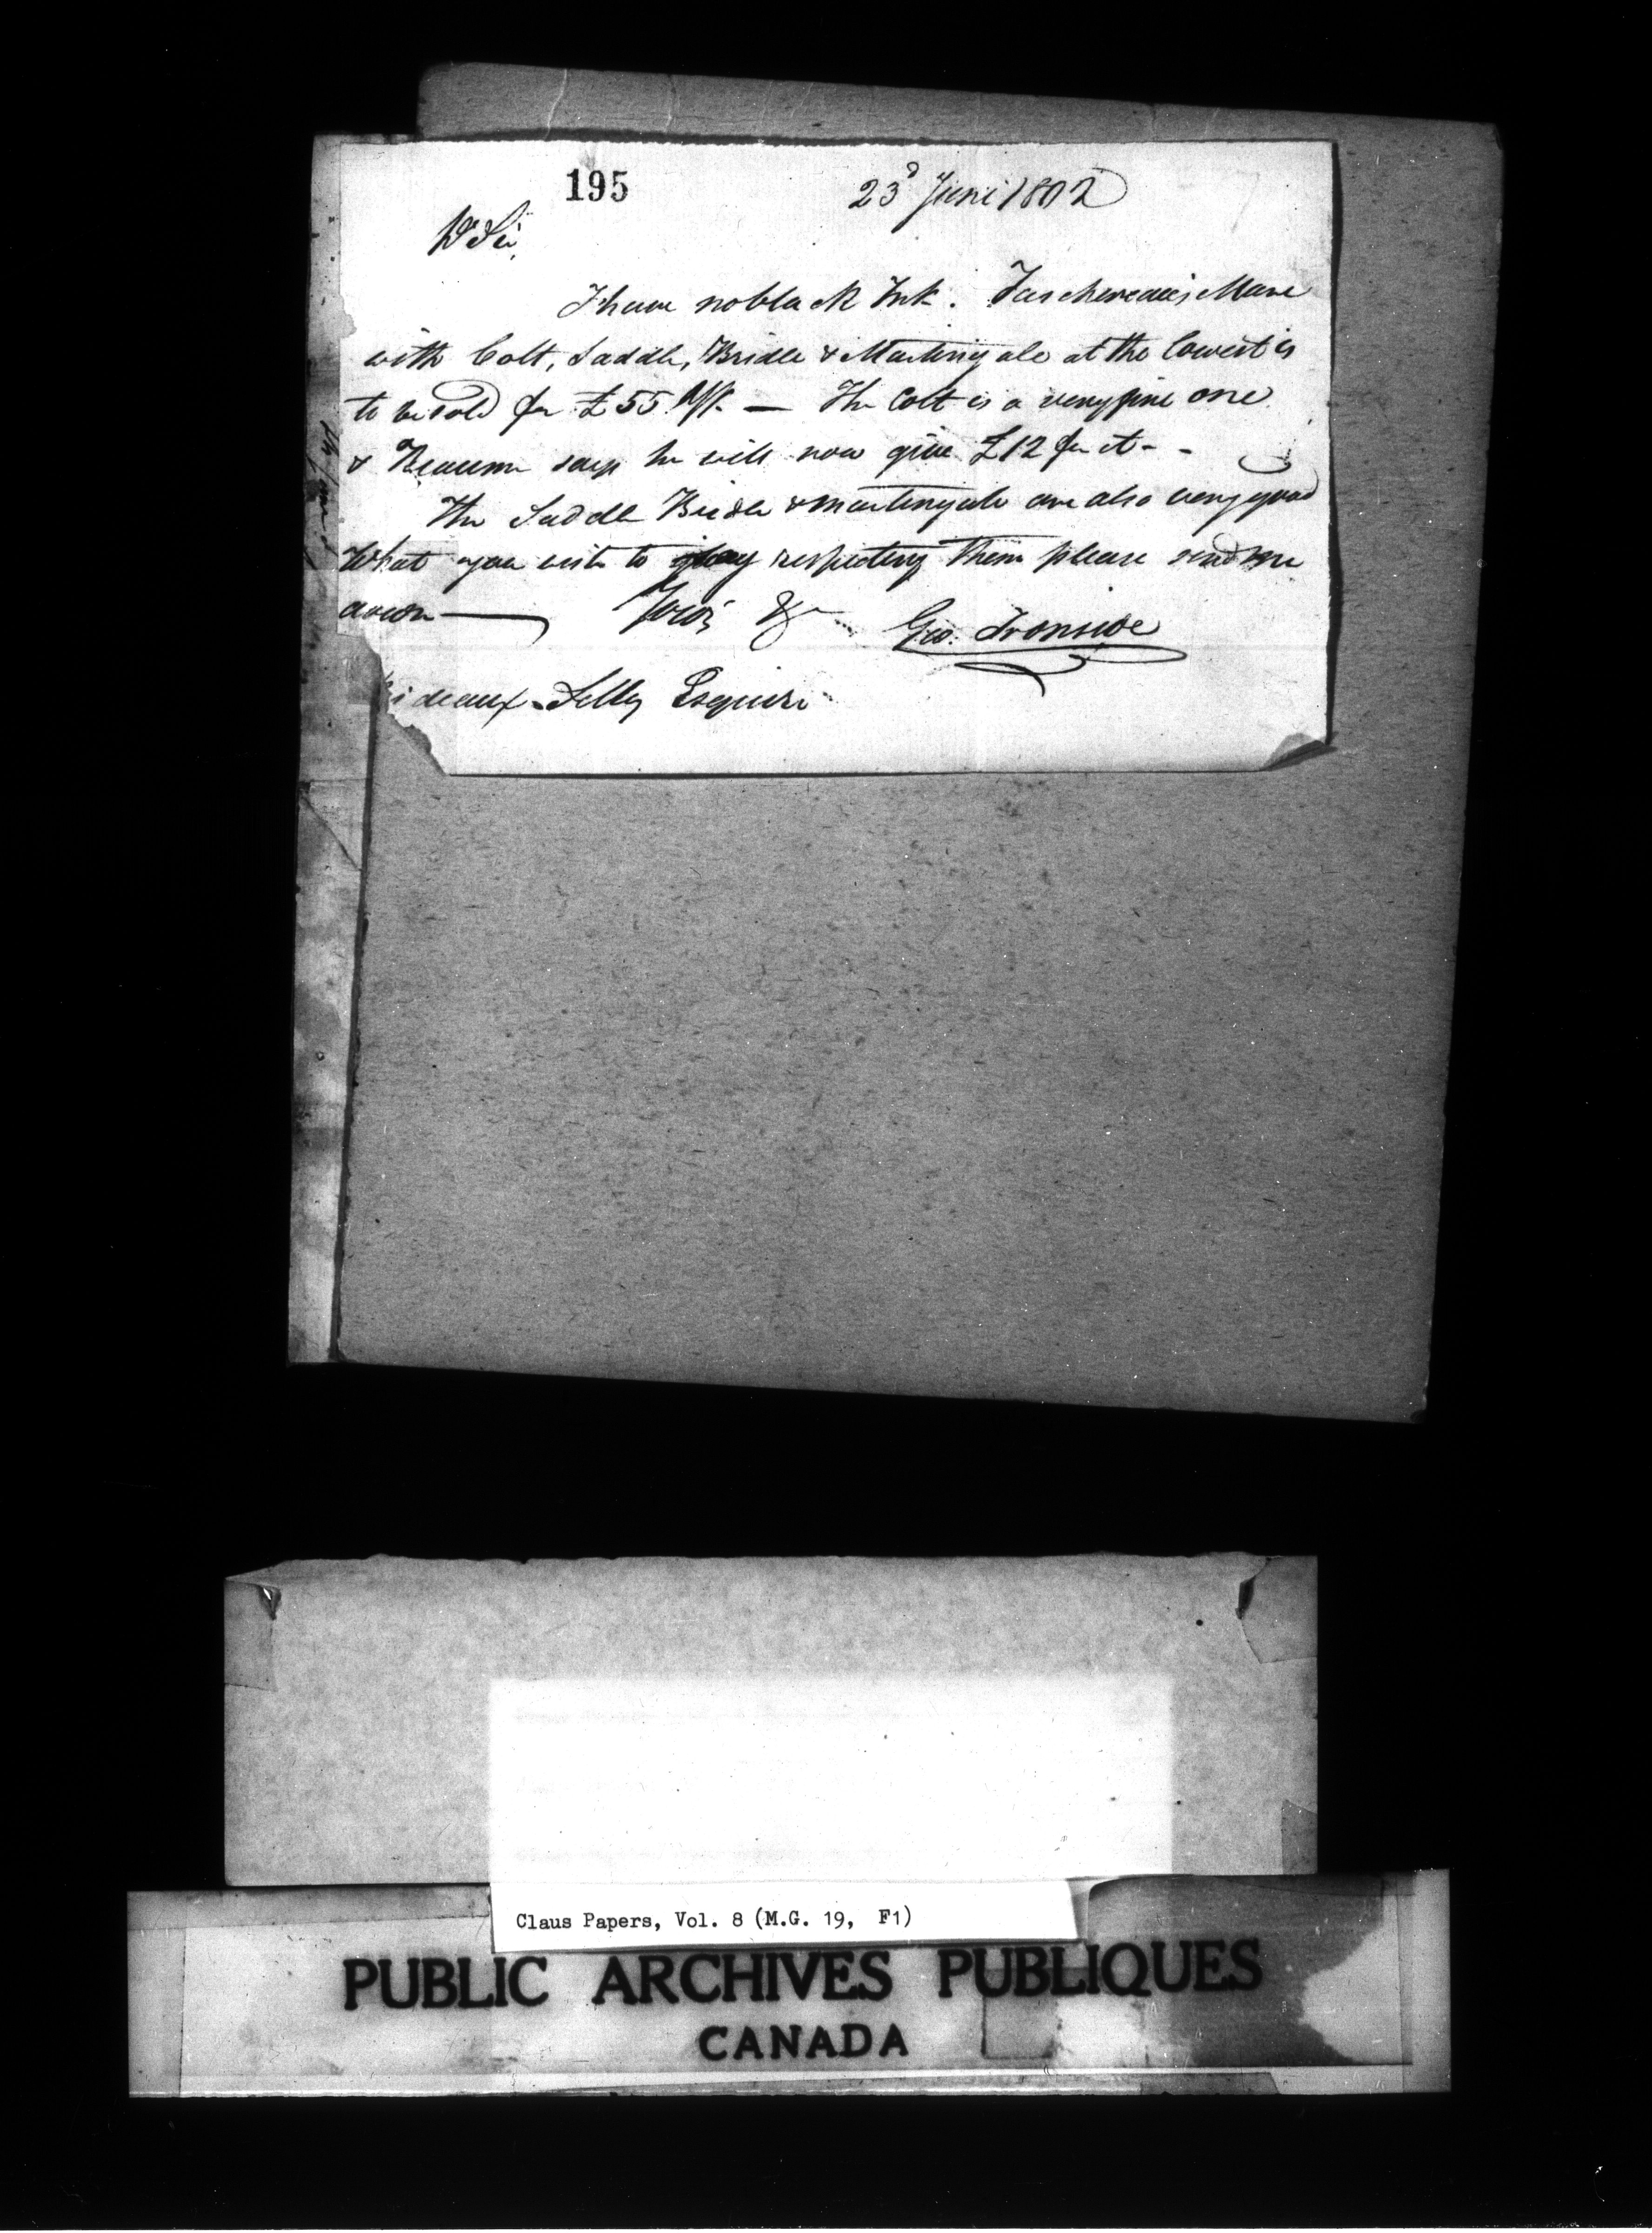 195
23d June 1802
D Sir,
I have no black Ink. Taschereau's Mare
with Colt, Saddle, Bridle & Martingale at the lowest is
to be sold for £55 — The Colt is a very fine one
& says he will now give £12 for it - -
The Saddle Bridle & martingale are also very good
What you wish to respecting them please send me
a word — Yours &c Geo. Ironside
ideaux Selby Esquire
Claus Papers, Vol. 8 (M.G. 19, F1)
PUBLIC ARCHIVES PUBLIQUES
CANADA